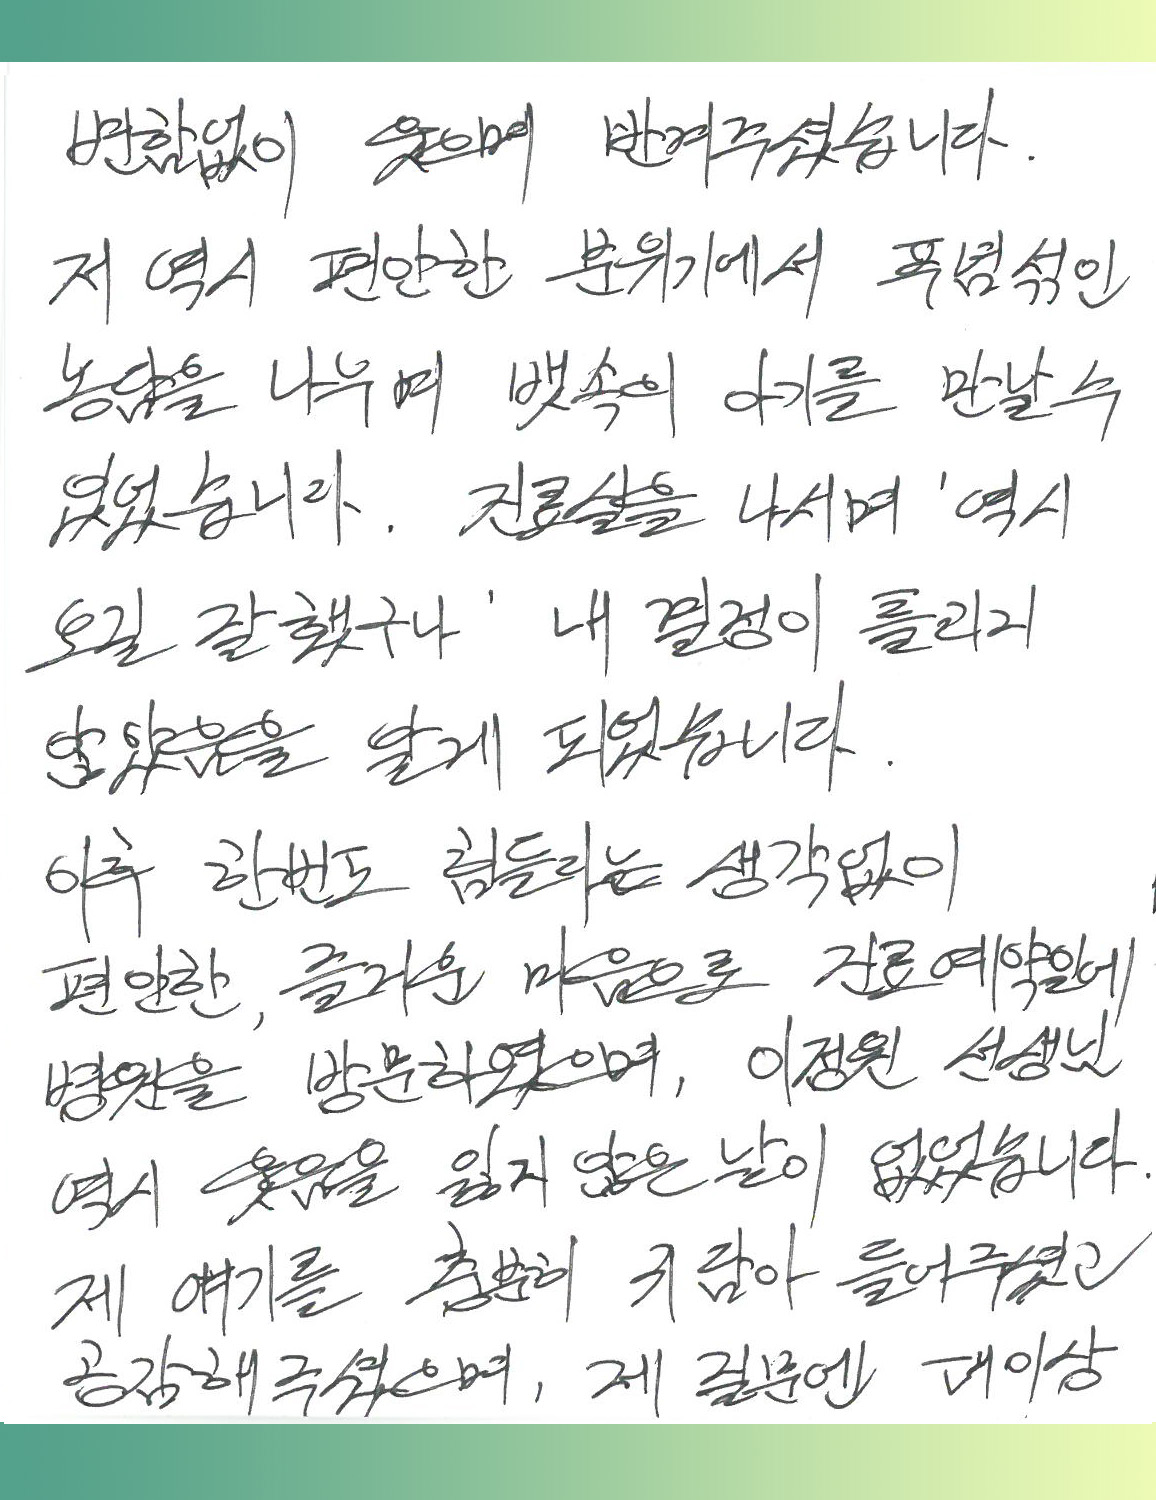 변함없이 웃으며 반겨주셨습니다.
저 역시 편안한 분위기에서 푸념섞인
농담을 나누며 뱃속의 아기를 만날 수
있었습니다. 진료실을 나서며 '역시
오길 잘했구나' 내 결정이 틀리지
않았음을 알게 되었습니다.
이후 한번도 힘들다는 생각없이
편안한, 즐거운 마음으로 진료예약일에
병원을 방문하였으며, 이정원 선생님
역시 웃음을 잃지 않은 날이 없었습니다.
제 얘기를 충분히 귀담아 들어주셨고
공감해주셨으며, 제 질문엔 더이상